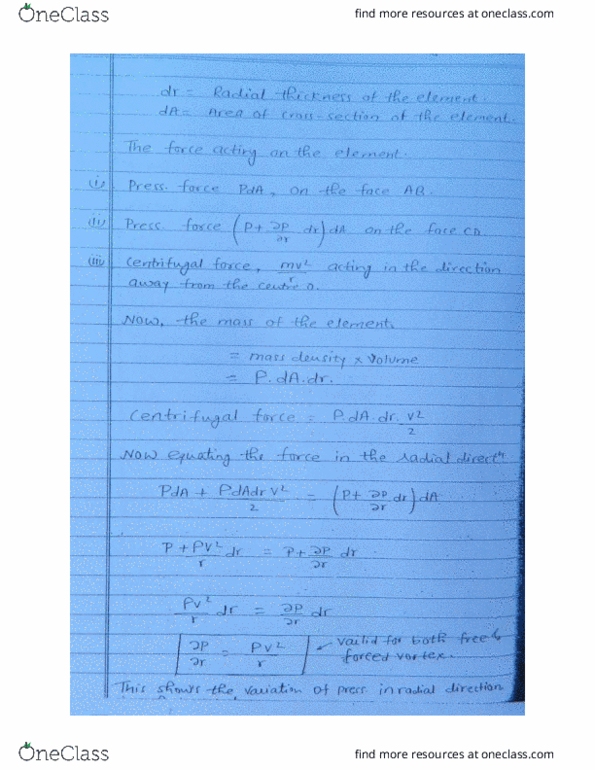 OneClass
find more resources at oneclass.com
dr = Radial thickness of the element.
dA = Area of cross-section of the element.
The force acting on the element.
(i) Press. force PdA, on the face AB.
(ii) Press force (P + ∂P/∂r dr) dA on the face CD.
(iii) Centrifugal force, mv²/r acting in the direction
away from the centre O.
Now, the mass of the element.
= mass density × Volume
= P.dA.dr.
Centrifugal force = P.dA.dr. v²/2
Now equating the force in the radial directⁿ
PdA + PdAdr v²/2 = (P + ∂P/∂r dr) dA
P + PV²/r dr = P + ∂P/∂r dr
PV²/r dr = ∂P/∂r dr
∂P/∂r = PV²/r ← Vailid for both free &
forced vortex.
This shows the variation of press in radial direction
OneClass
find more resources at oneclass.com